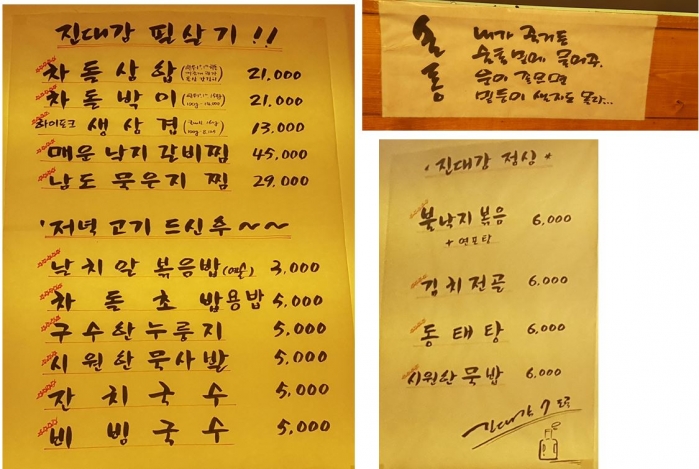 진대감 필살기 !!
차돌삼합 21,000
차돌박이 21,000
하이포크 생삼겹 13,000
매운낙지갈비찜 45,000
남도묵은지찜 29,000
'저녁 고기 드신후 ~~
날치알볶음밥 3,000
차돌초밥용밥 5,000
구수한누룽지 5,000
시원한묵사발 5,000
잔치국수 5,000
비빔국수 5,000
술통
내가 죽거든
술통 밑에 묻어줘.
운이 좋으면
밑둥이 샐지도 몰라...
진대감 점심
불낙지볶음 6,000
+연포탕
김치전골 6,000
동태탕 6,000
시원한묵밥 6,000